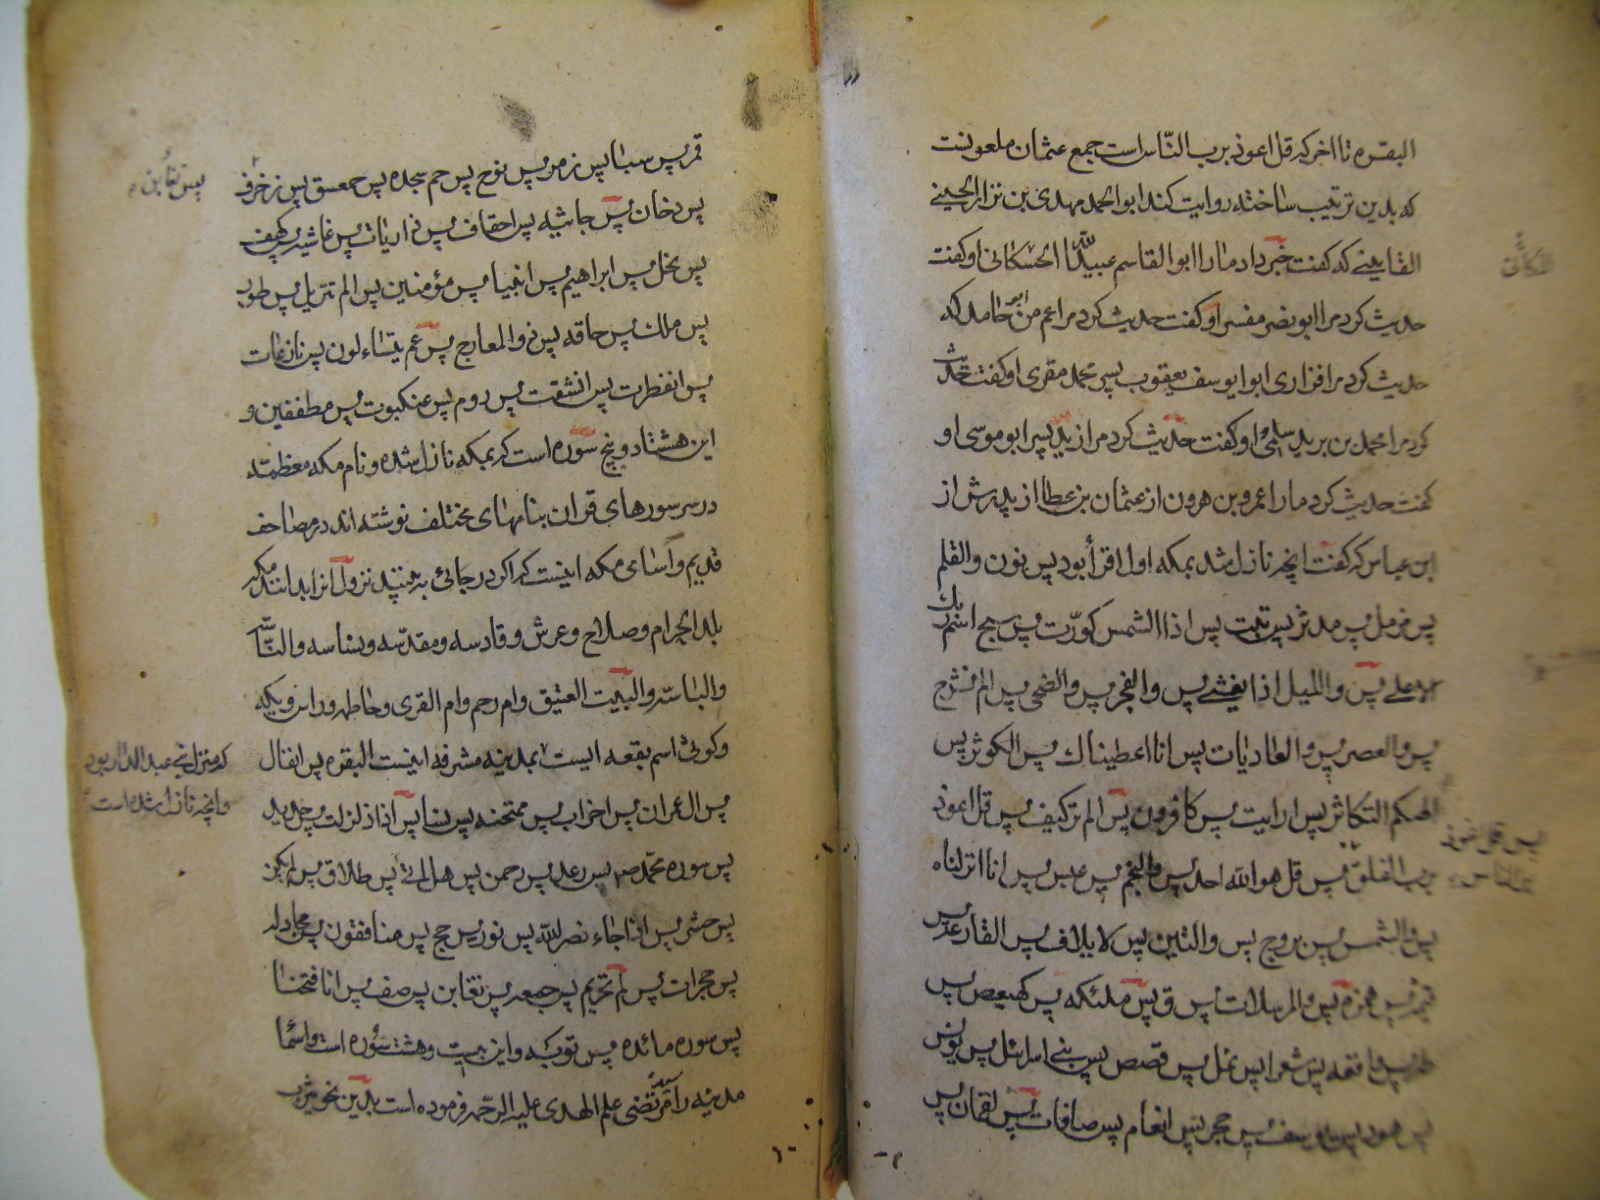 البقره تا اخر که قل اعوذ برب النّاس است جمع عثمان ملعونست
که بدین ترتیب ساخته روایت کند ابوالحمد مهدی بن نزار الحسنی
القاینی که گفت خبر داد مارا ابو القاسم عبیدالله الحسکانی او گفت
حدیث کرد مرا ابو نصر مفسر او گفت حدیث کرد مرا عم من ابو حامد که
حدیث کرد مرا فزاری ابو یوسف یعقوب پسر محمد مقری او گفت حدیث
کرد مرا محمد بن یزید سلیمی او گفت حدیث کرد مرا زید پسر ابو موسی او
گفت حدیث کرد مارا عمرو بن هرون از عثمان بن عطا از پدرش از
ابن عباس که گفت انچه نازل شد بمکه اول اقرأ بود پس نون والقلم
پس مزمل پس مدثر پس تبت پس اذا الشمس کوّرت پس سبح اسم ربك
الاعلی پس واللیل اذا یغشی پس والفجر پس والضحی پس الم نشرح
پس والعصر پس والعادیات پس انا اعطیناك پس الکوثر پس
الهیکم التکاثر پس ارایت پس کافرون پس الم ترکیف پس قل اعوذ
برب الفلق پس قل هو الله احد پس والنجم پس عبس پس انا انزلناه
پس والشمس پس بروج پس والتین پس لایلاف پس القارعه پس
قیمه پس همزه پس والمرسلات پس ق پس ملئکه پس کهیعص پس
طه پس واقعه پس شعرا پس نمل پس قصص پس بنی اسرائیل پس یونس
پس هود پس یوسف پس حجر پس انعام پس صافات پس لقمان پس
الحسکانی
پس قل اعوذ
برب الناس
قمر پس سبا پس زمر پس نوح پس حم سجده پس حمعسق پس زخرف
پس دخان پس جاثیه پس احقاف پس ذاریات پس غاشیه پس کهف
پس نحل پس ابراهیم پس انبیا پس مؤمنین پس الم تنزیل پس طور
پس ملك پس حاقه پس ذو المعارج پس عم یتساءلون پس نازعات
پس انفطرت پس انشقت پس روم پس عنکبوت پس مطففین و
این هشتاد و پنج سوره است که بمکه نازل شده و نام مکه معظمه
در سر سورهای قران بنامهای مختلف نوشته اند در مصاحف
قدیم و اسامی مکه اینست که اگر در جائی به بینید نزول آنرا بدانند مکه
بلد الحرام وصلاح وعرش وقادسه ومقدسه ونساسه والنّاسّه
والباسه والبیت العتیق وام رحم وام القری وحاطمه وراس وبکه
وکوثی اسم بقعه ایست بمدینه مشرفه اینست البقره پس انفال
پس ال عمران پس احزاب پس ممتحنه پس نسا پس اذا زلزلت پس حدید
پس سوره محمّد ص پس رعد پس رحمن پس هل اتی پس طلاق پس لم یکن
پس حشر پس اذا جاء نصر الله پس نور پس حج پس منافقون پس مجادله
پس حجرات پس لم تحریم پس جمعه پس تغابن پس صف پس انا فتحنا
پس سوره مائده پس توبه واین بیست وهشت سوره است واسما
مدینه را سید مرتضی علم الهدی علیه الرحمه فرموده است بدین نحو یثرب
پس تغابن
که منزل بنی عبدالدار بود
وانچه نازل شده است